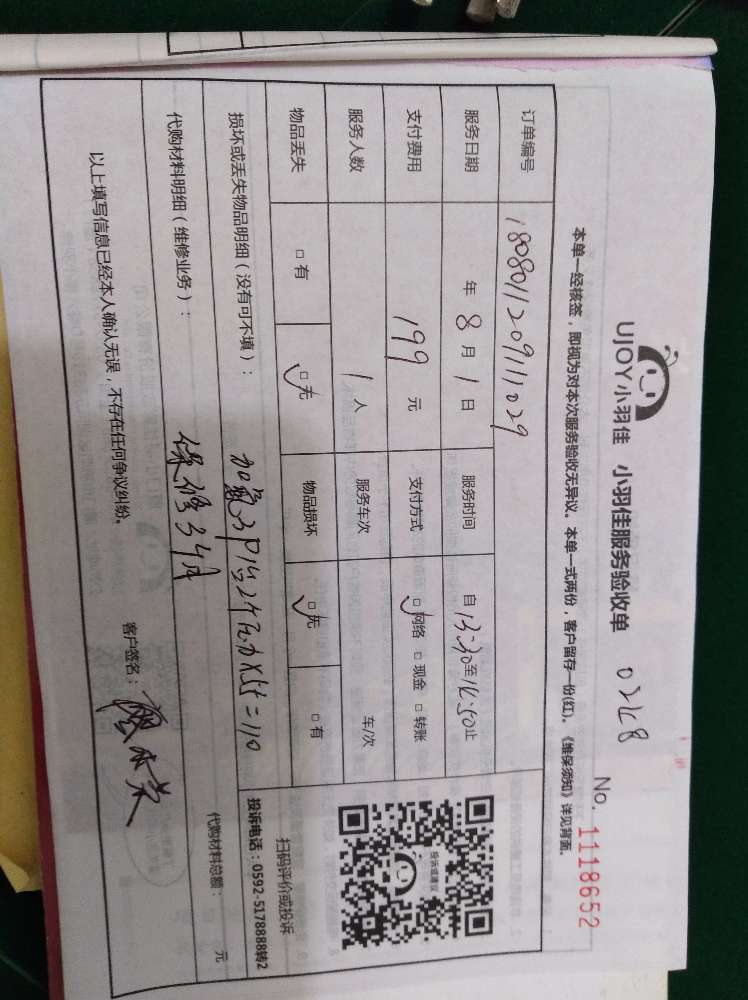 UJOY小羽佳 小羽佳服务验收单
No. 1118652
本单一经核签，即视为对本次服务验收无异议。本单一式两份，客户留存一份(红)。《维保须知》详见背面。
订单编号 180801120911029
服务日期 年 8 月 1 日 服务时间 自 13:30 至 14:50 止
支付费用 199 元 支付方式 □网络 □现金 □转账
服务人数 1 人 服务车次 车/次
物品丢失 □有 □无 物品损坏 □无 □有
损坏或丢失物品明细（没有可不填）：
代购材料明细（维修业务）：
保修3个月
代购材料总额： 元
以上填写信息已经本人确认无误，不存在任何争议纠纷。
客户签名：
投诉或建议
扫码评价或投诉
投诉电话：0592-5178888转2